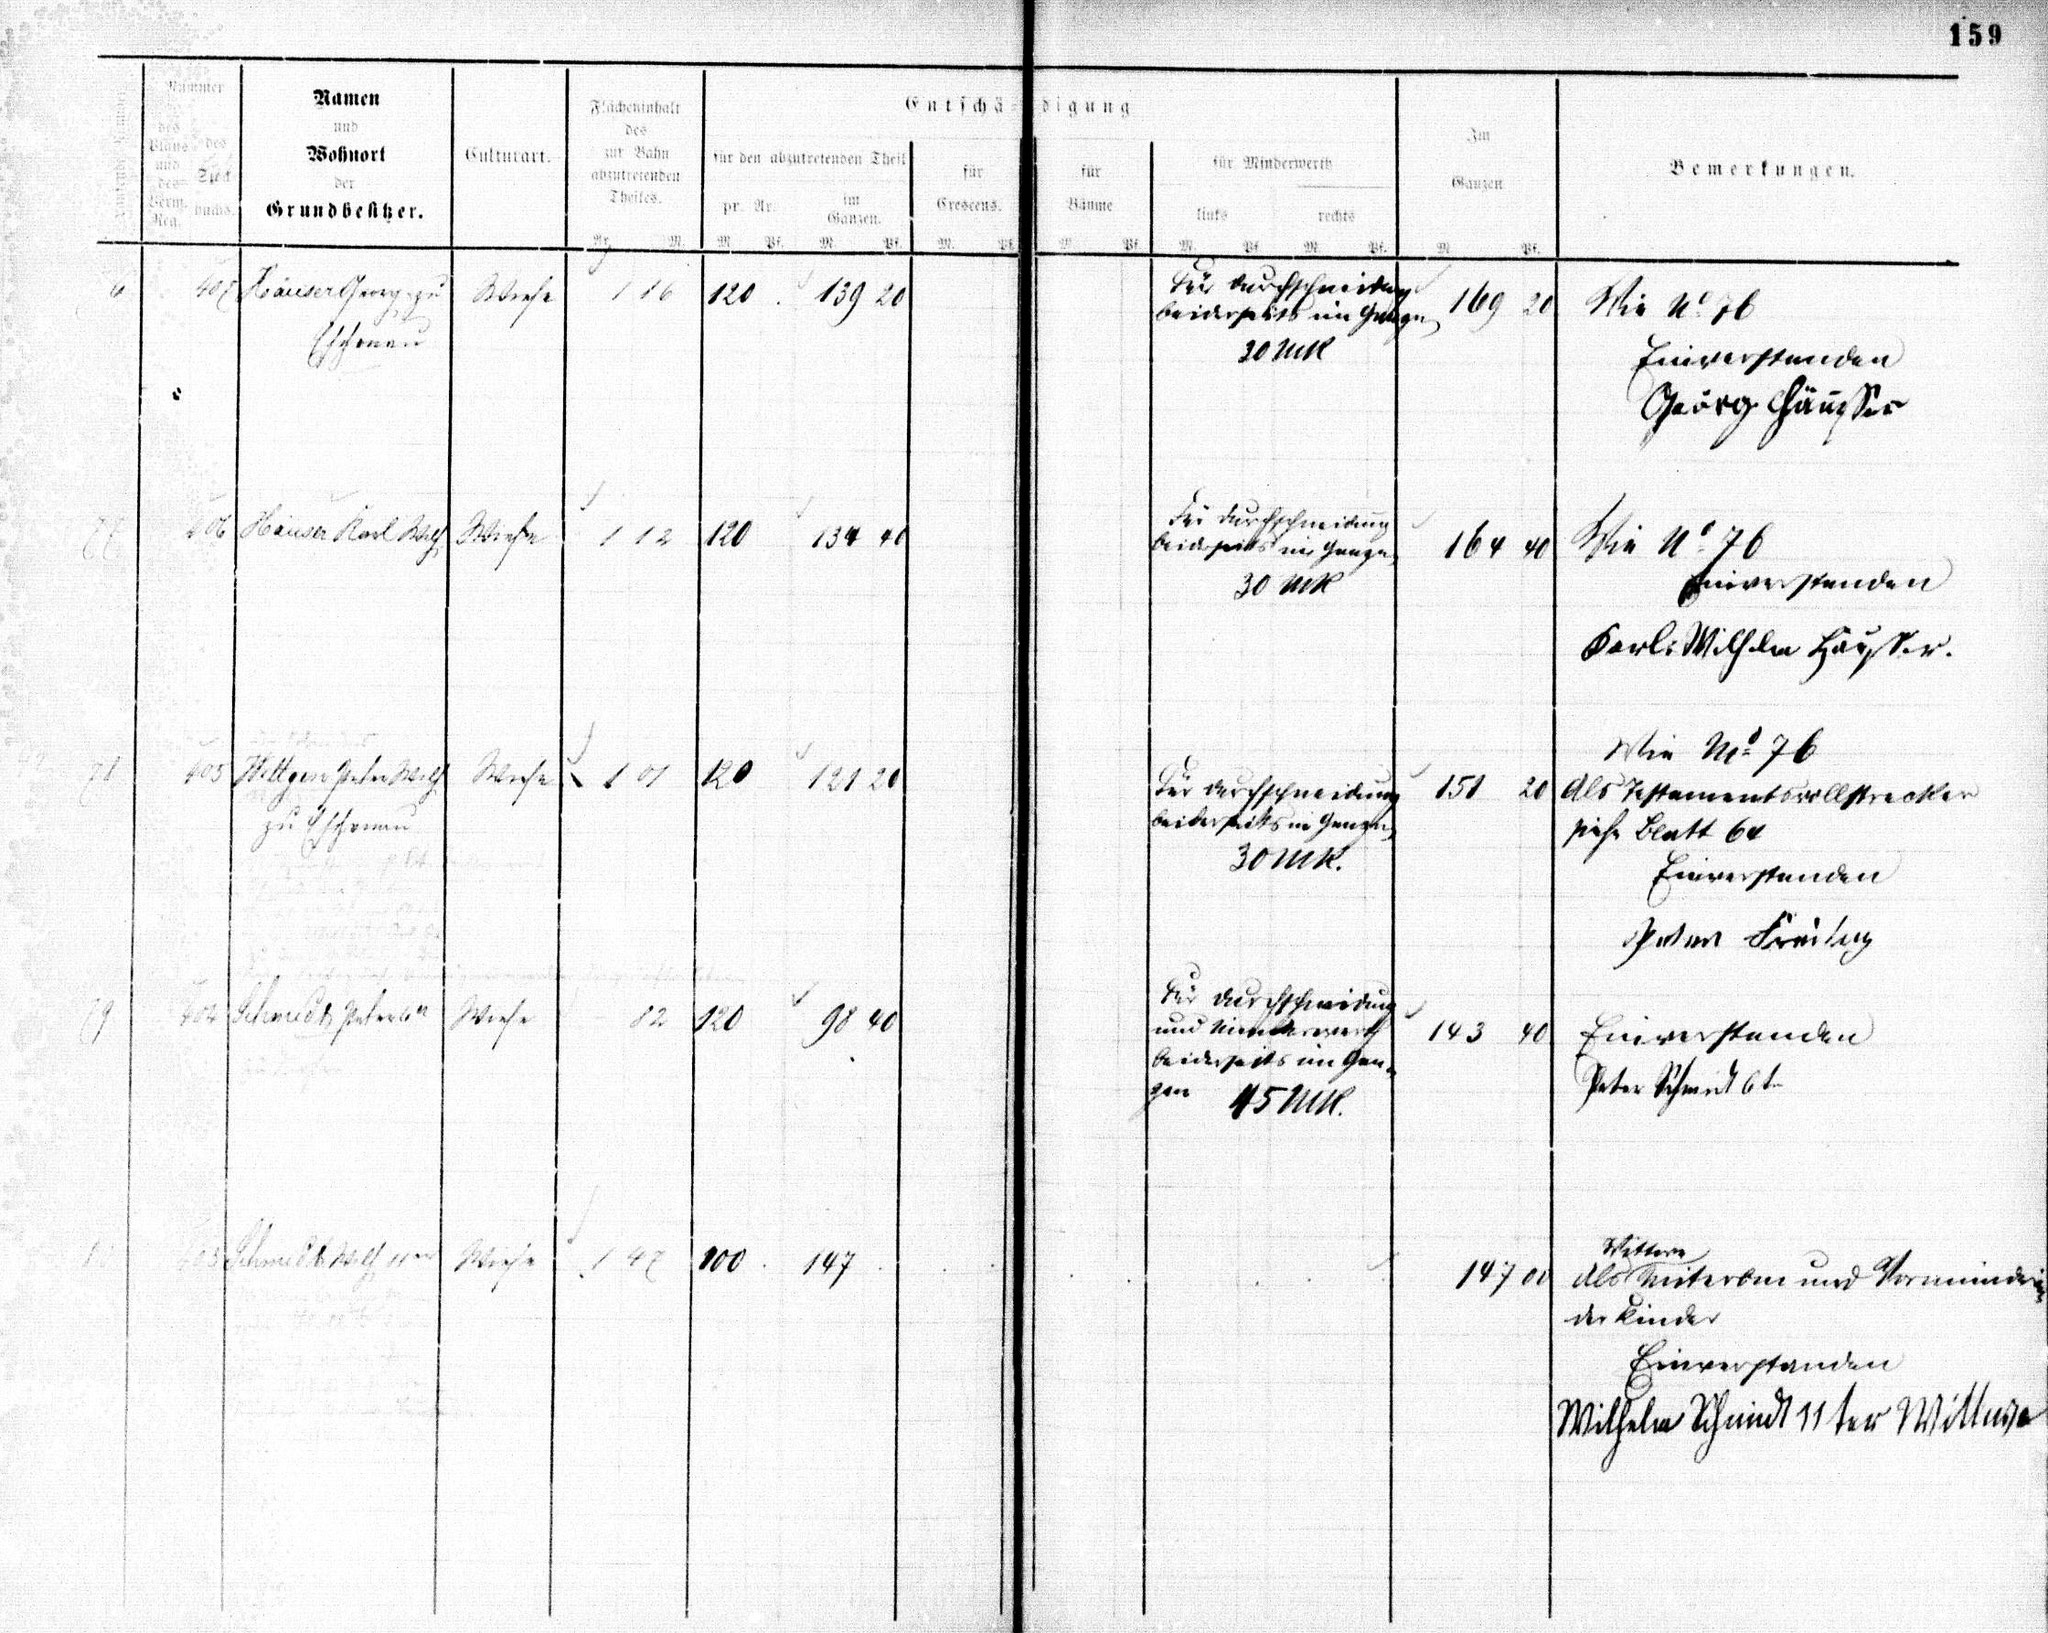 159
Nummer
des Plans und des Verm. Reg.
des Stockbuchs.
Namen
und
Wohnort
der
Grundbesitzer.
Culturart.
Flächeninhalt
des
zur Bahn
abzutretenden
Theiles.
Ar. M.
Entschädigung
für den abzutretenden Theil
pr. Ar.
im Ganzen.
M. Pf. M. Pf.
für
Crescenz.
M. Pf.
für
Bäume
M. Pf.
für Minderwerth
links rechts
M. Pf. M. Pf.
Im
Ganzen
M. Pf.
Bemerkungen.
407 Häuser Georg zu Wiese 1 16 120 139 20 Für Durchschneidung 169 20 Wie No 76
Eschenau beiderseits im Ganzen
30 MK
Einverstanden
Georg Häußer
406 Häuser Karl Wilh Wiese 1 12 120 134 40 Für Durchschneidung 164 40 Wie No 76
beiderseits im Ganzen
30 MK
Einverstanden
Karl Wilhelm Häußer.
78 405 Peter Wilh Wiese 1 01 120 121 20 Für Durchschneidung 151 20 Wie No 76
zu Eschenau beiderseits im Ganzen
30 MK.
Als Testamentsvollstrecker
siehe Blatt 64
Einverstanden
Peter Freitag
79 404 Schmidt Peter 6r Wiese 82 120 98 40 Für Durchschneidung 143 40 Einverstanden
und Minderwerth
beiderseits im Gan-
zen 45 MK.
Peter Schmidt 6t
403 Schmidt Wilh 11er Wiese 1 47 100 147 147 00 Wittwe
Als Miterbin und Vormünderin
der Kinder
Einverstanden
Wilhelm Schmidt 11ter Wittwe